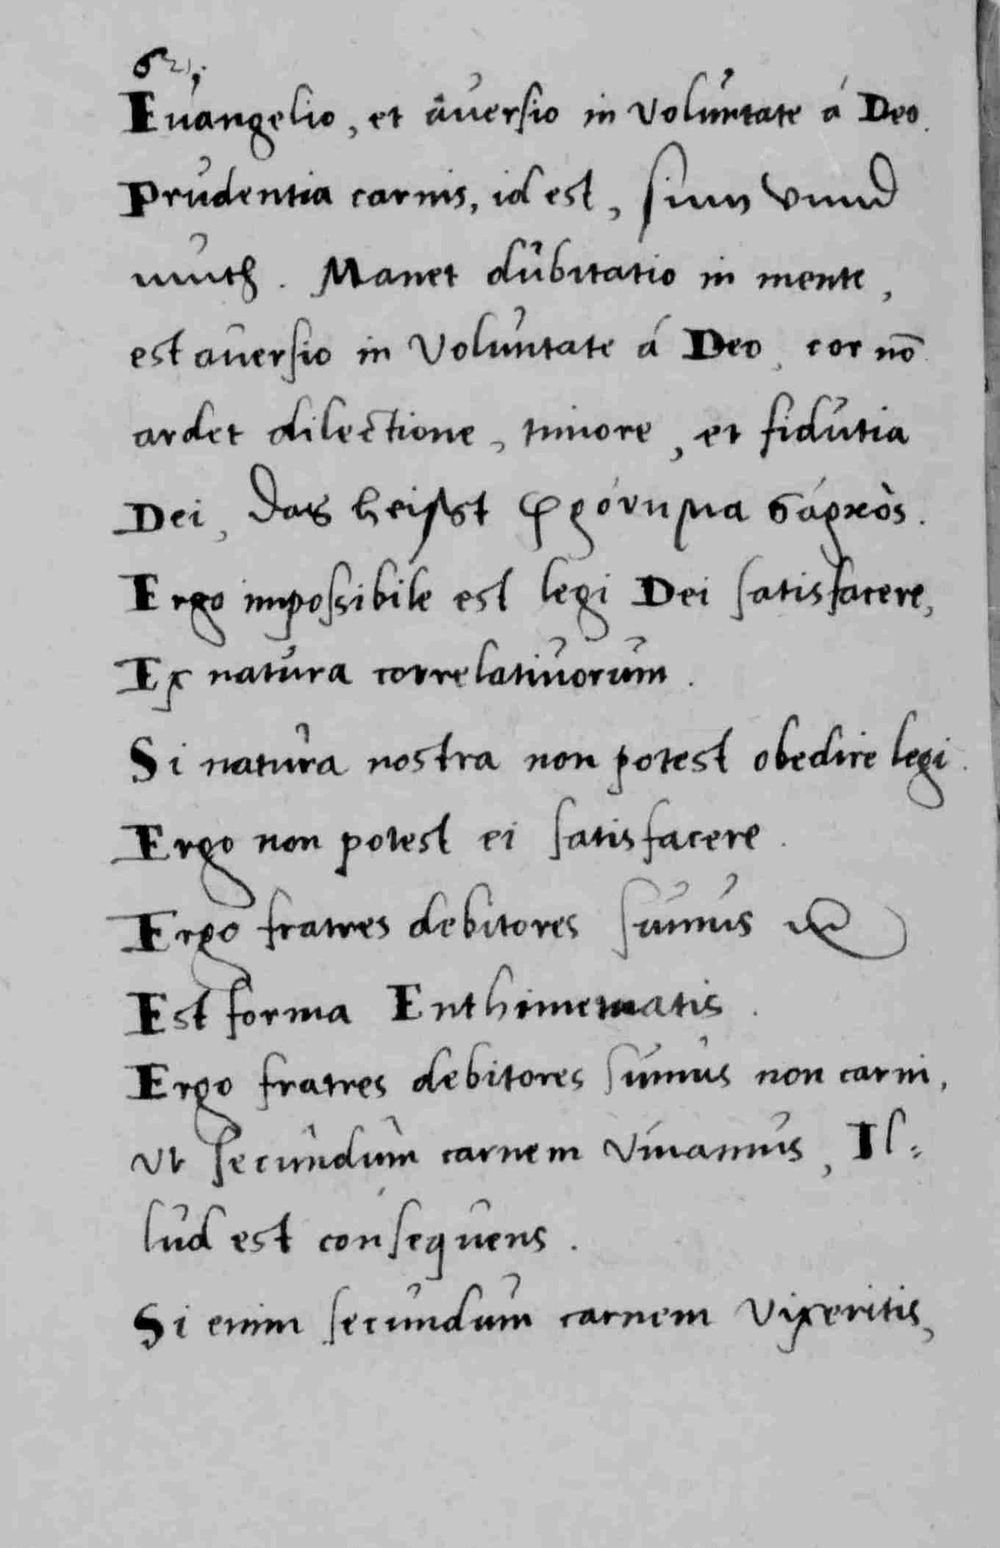 62.
Euangelio, et auersio in voluntate á Deo.
Prudentia carnis, id est, sinn vnnd
muth. Manet dubitatio in mente,
est auersio in voluntate á Deo, cor nō
ardet dilectione, timore, et fidutia
Dei, das heisst φρόνημα σάρκὸς.
Ergo impossibile est legi Dei satisfacere,
Ex natura correlatiuorum.
Si natura nostra non potest obedire legi.
Ergo non potest ei satisfacere.
Ergo fratres debitores sumus
Est forma Enthimematis.
Ergo fratres debitores sumus non carni,
Ut secundum carnem viuamus, Il:
lud est consequens.
Si enim secundum carnem vixeritis,